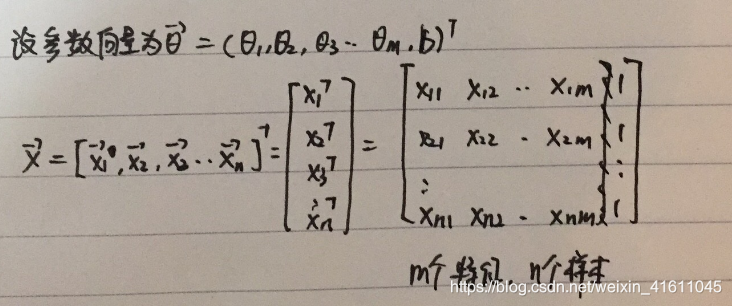 设参数向量为θ⃗ = (θ₁,θ₂,θ₃‥θₘ,b)ᵀ
X⃗ = [x⃗₁,x⃗₂,x⃗₃‥x⃗ₙ]ᵀ = [x₁ᵀ x₂ᵀ x₃ᵀ ⋮ xₙᵀ] = [x₁₁ x₁₂ ‥ x₁ₘ 1
x₂₁ x₂₂ - x₂ₘ 1
⋮ ⋮
xₙ₁ xₙ₂ - xₙₘ 1]
m个特征, n个样本
https://blog.csdn.net/weixin_41611045